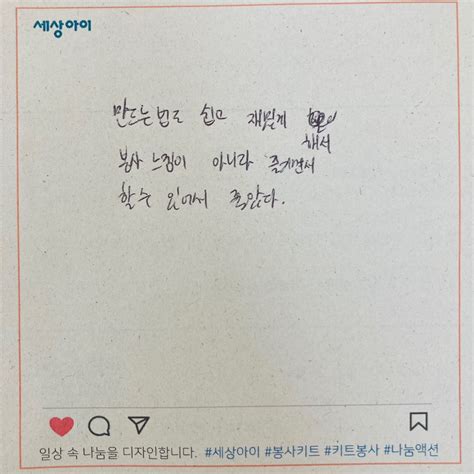 세상아이
만드는 법도 쉽고 재밌게
해서
봉사 느낌이 아니라 즐기면서
할 수 있어서 좋았다.
일상 속 나눔을 디자인합니다. #세상아이 #봉사키트 #키트봉사 #나눔액션